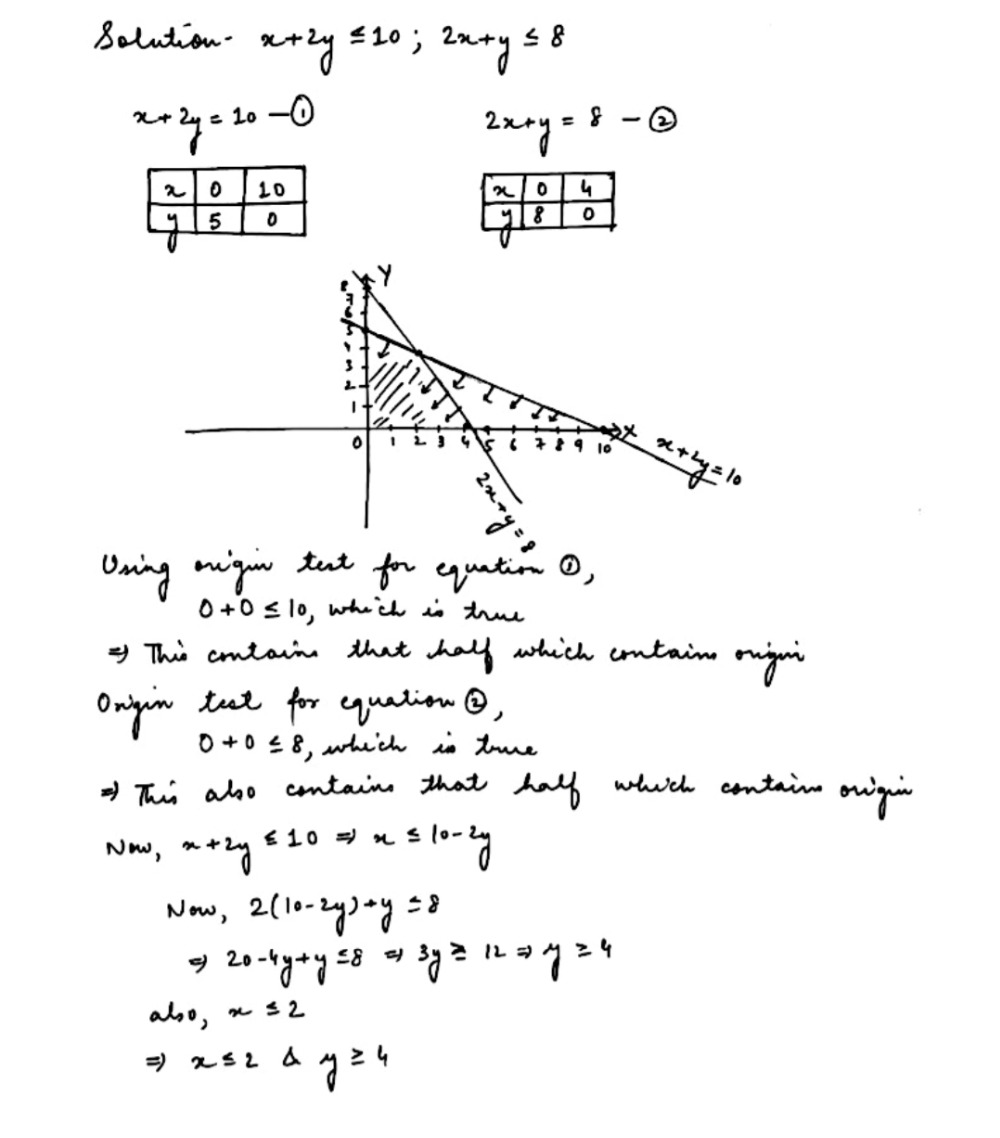 Solution- x+2y ≤ 10 ; 2x+y ≤ 8
x+2y = 10 —①
2x+y = 8 — ②
x 0 10
y 5 0
x 0 4
y 8 0
Y
8
7
6
5
4
3
2
1
0 1 2 3 4 5 6 7 8 9 10 X
x+2y=10
2x+y=8
Using origin test for equation ①,
0+0 ≤ 10, which is true
⇒ This contains that half which contains origin
Origin test for equation ②,
0+0 ≤ 8, which is true
⇒ This also contains that half which contains origin
Now, x+2y ≤ 10 ⇒ x ≤ 10-2y
Now, 2(10-2y)+y ≤ 8
⇒ 20-4y+y ≤8 ⇒ 3y ≥ 12 ⇒ y ≥ 4
also, x ≤ 2
⇒ x ≤ 2 & y ≥ 4